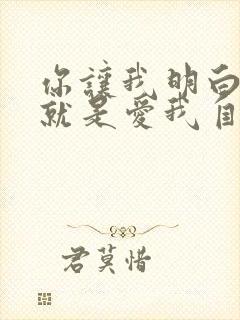 你讓我明白
就是愛我自
君莫惜